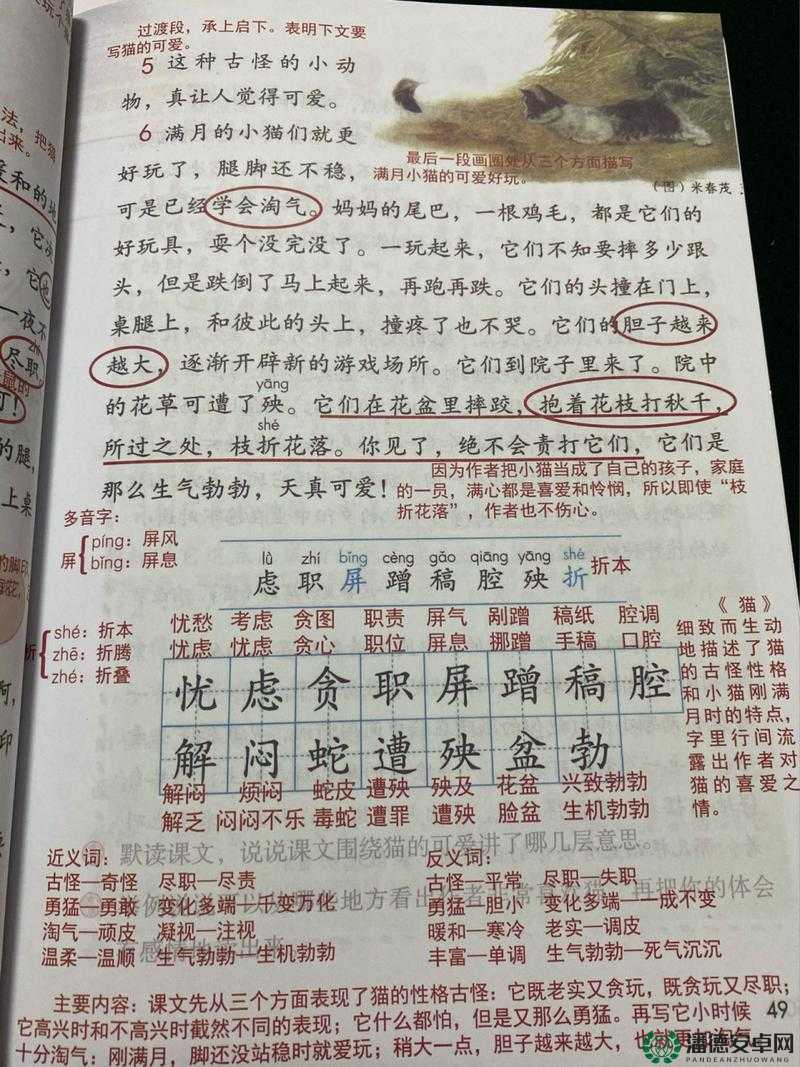 过渡段，承上启下。表明下文要
写猫的可爱。
5 这种古怪的小动
物，真让人觉得可爱。
6 满月的小猫们就更
好玩了，腿脚还不稳，
最后一段画圈处从三个方面描写
满月小猫的可爱好玩。
（图）米春茂
可是已经学会淘气。妈妈的尾巴，一根鸡毛，都是它们的
好玩具，耍个没完没了。一玩起来，它们不知要摔多少跟
头，但是跌倒了马上起来，再跑再跌。它们的头撞在门上，
桌腿上，和彼此的头上，撞疼了也不哭。它们的胆子越来
越大，逐渐开辟新的游戏场所。它们到院子里来了。院中
yāng
的花草可遭了殃。它们在花盆里摔跤，抱着花枝打秋千，
shé
所过之处，枝折花落。你见了，绝不会责打它们，它们是
那么生气勃勃，天真可爱！
因为作者把小猫当成了自己的孩子，家庭
的一员，满心都是喜爱和怜悯，所以即使“枝
折花落”，作者也不伤心。
多音字：
屏 píng：屏风
bǐng：屏息
lǜ zhí bǐng cèng gǎo qiāng yāng shé
虑 职 屏 蹭 稿 腔 殃 折 折本
折 shé：折本
zhē：折腾
zhé：折叠
忧愁 考虑 贪图 职责 屏气 剐蹭 稿纸 腔调
忧虑 忧虑 贪心 职位 屏息 挪蹭 手稿 口腔
忧 虑 贪 职 屏 蹭 稿 腔
解 闷 蛇 遭 殃 盆 勃
解闷 烦闷 蛇皮 遭殃 殃及 花盆 兴致勃勃
解乏 闷闷不乐 毒蛇 遭罪 遭殃 脸盆 生机勃勃
《猫》
细致而生动
地描述了猫
的古怪性格
和小猫刚满
月时的特点，
字里行间流
露出作者对
猫的喜爱之
情。
默读课文，说说课文围绕猫的可爱讲了哪几层意思。
近义词：
古怪—奇怪 尽职—尽责
勇猛—勇敢 变化多端—千变万化
淘气—顽皮 凝视—注视
温柔—温顺 生气勃勃—生机勃勃
反义词：
古怪—平常 尽职—失职
勇猛—胆小 变化多端—一成不变
暖和—寒冷 老实—调皮
丰富—单调 生气勃勃—死气沉沉
再把你的体会
主要内容：课文先从三个方面表现了猫的性格古怪：它既老实又贪玩，既贪玩又尽职；
它高兴时和不高兴时截然不同的表现；它什么都怕，但是又那么勇猛。再写它小时候
十分淘气：刚满月，脚还没站稳时就爱玩；稍大一点，胆子越来越大，也就更加淘气。
49
潘德安卓网
PANDEANZHUOWANG